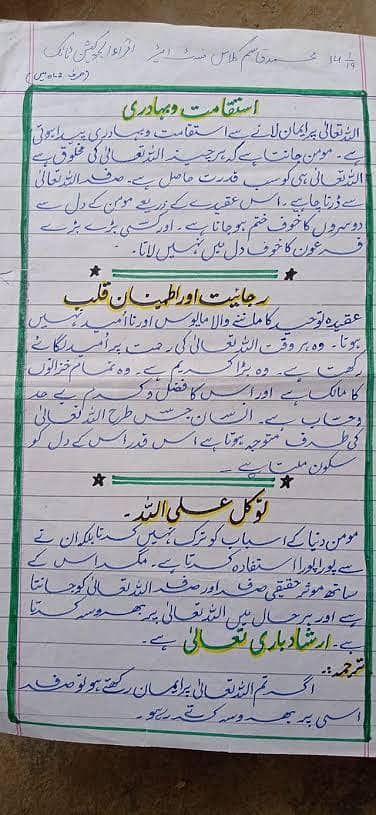 محمد قاسم کلاس فسٹ ائیر اقراء ایجوکیشن ٹانک
استقامت و بہادری
اللہ تعالیٰ پر ایمان لانے سے استقامت و بہادری پیدا ہوتی
ہے۔ مومن جانتا ہے کہ ہر چیز اللہ تعالیٰ کی مخلوق ہے
اللہ تعالیٰ ہی کو سب قدرت حاصل ہے۔ صرف اللہ تعالیٰ
سے ڈرنا چاہیے۔ اس عقیدے کے ذریعے مومن کے دل سے
دوسروں کا خوف ختم ہو جاتا ہے۔ اور کسی بڑے بڑے
فرعون کا خوف دل میں نہیں لاتا۔
رجائیت اور اطمینان قلب
عقیدہ توحید کا ماننے والا مایوس اور ناامید نہیں
ہوتا۔ وہ ہر وقت اللہ تعالیٰ کی رحمت پر امید لگائے
رکھتا ہے۔ وہ بڑا کریم ہے۔ وہ تمام خزانوں
کا مالک ہے اور اس کا فضل و کرم بے حد
و حساب ہے۔ انسان جس طرح اللہ تعالیٰ
کی طرف متوجہ ہوتا ہے اس قدر اس کے دل کو
سکون ملتا ہے۔
توکل علی اللہ۔
مومن دنیا کے اسباب کو ترک نہیں کرتا بلکہ ان سے
پورا پورا استفادہ کرتا ہے۔ مگر اس کے
ساتھ موثر حقیقی صرف اور صرف اللہ تعالیٰ کو جانتا
ہے اور ہر حال میں اللہ تعالیٰ پر بھروسہ کرتا
ہے۔ ارشاد باری تعالیٰ ہے۔
ترجمہ:۔
اگر تم اللہ تعالیٰ پر ایمان رکھتے ہو تو صرف
اسی پر بھروسہ کرتے رہو۔